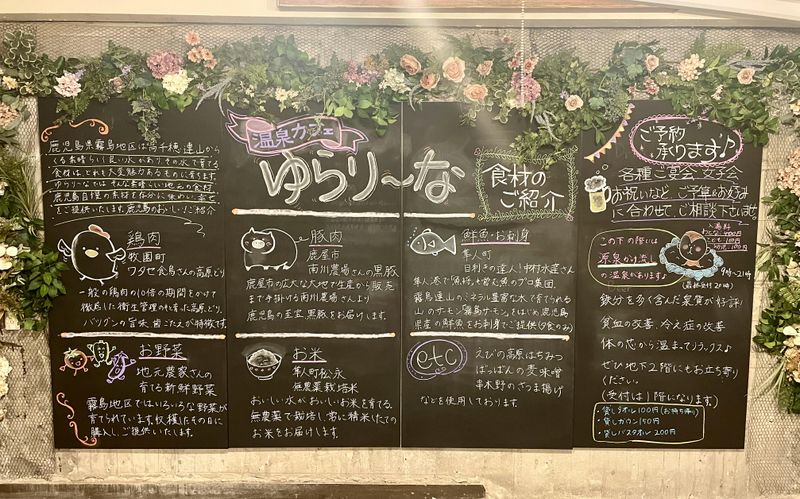 鹿児島県霧島地区は高千穂連山から
くる素晴らしく良い水があり、その水で育てる
食材はどれも大変魅力あるものに育ちます。
ゆらり〜なではそんな素晴らしい地元の食材
鹿児島自慢の素材を存分に味わい幸せ
をご提供いたします。鹿児島のおいしい!ご紹介
温泉カフェ
ゆらり〜な
食材の
ご紹介
ご予約
承ります♪
各種ご宴会、女子会
お祝いなど、ご予算とお好み
に合わせて、ご相談下さいませ
鶏肉
牧園町
ワタセ食鳥さんの高原どり
一般の鶏肉の10倍の期間をかけて
徹底した衛生管理のもと育った高原どり。
バツグンの旨味、歯ごたえが特徴です。
豚肉
鹿屋市
南川農場さんの黒豚
鹿屋市の広大な大地で生産から販売
まで手掛ける南川農場さんより
鹿児島の至宝黒豚をお届けします。
鮮魚・お刺身
隼人町
目利きの達人!中村水産さん
隼人港で「魚将」も唸る魚のプロ集団。
霧島連山のミネラル豊富な水で育てられる
山のサーモン「霧島サーモン」をはじめ鹿児島
県産の鮮魚をお刺身でご提供(夕食のみ)
この下の階には
源泉かけ流し
の温泉があります♪
入浴料
9時〜21時
(最終受付20時)
お野菜
地元農家さんの
育てる新鮮野菜
霧島地区ではいろいろな野菜が
育てられています。収穫したその日に
購入し、ご提供いたします。
お米
隼人町松永
無農薬栽培米
おいしい水がおいしいお米を育てる。
無農薬で栽培し、常に精米したての
お米をお届けします。
etc
えびの高原はちみつ
ばっばんの麦味噌
串木野のさつま揚げ
などを使用しております。
鉄分を多く含んだ泉質が好評!
貧血の改善、冷え症の改善
体の芯から温まってリラックス♪
ぜひ地下2階にもお立ち寄り
ください。
(受付は1階になります)
・貸しタオル100円(お持ち帰り)
・貸しガウン150円
・貸しバスタオル200円